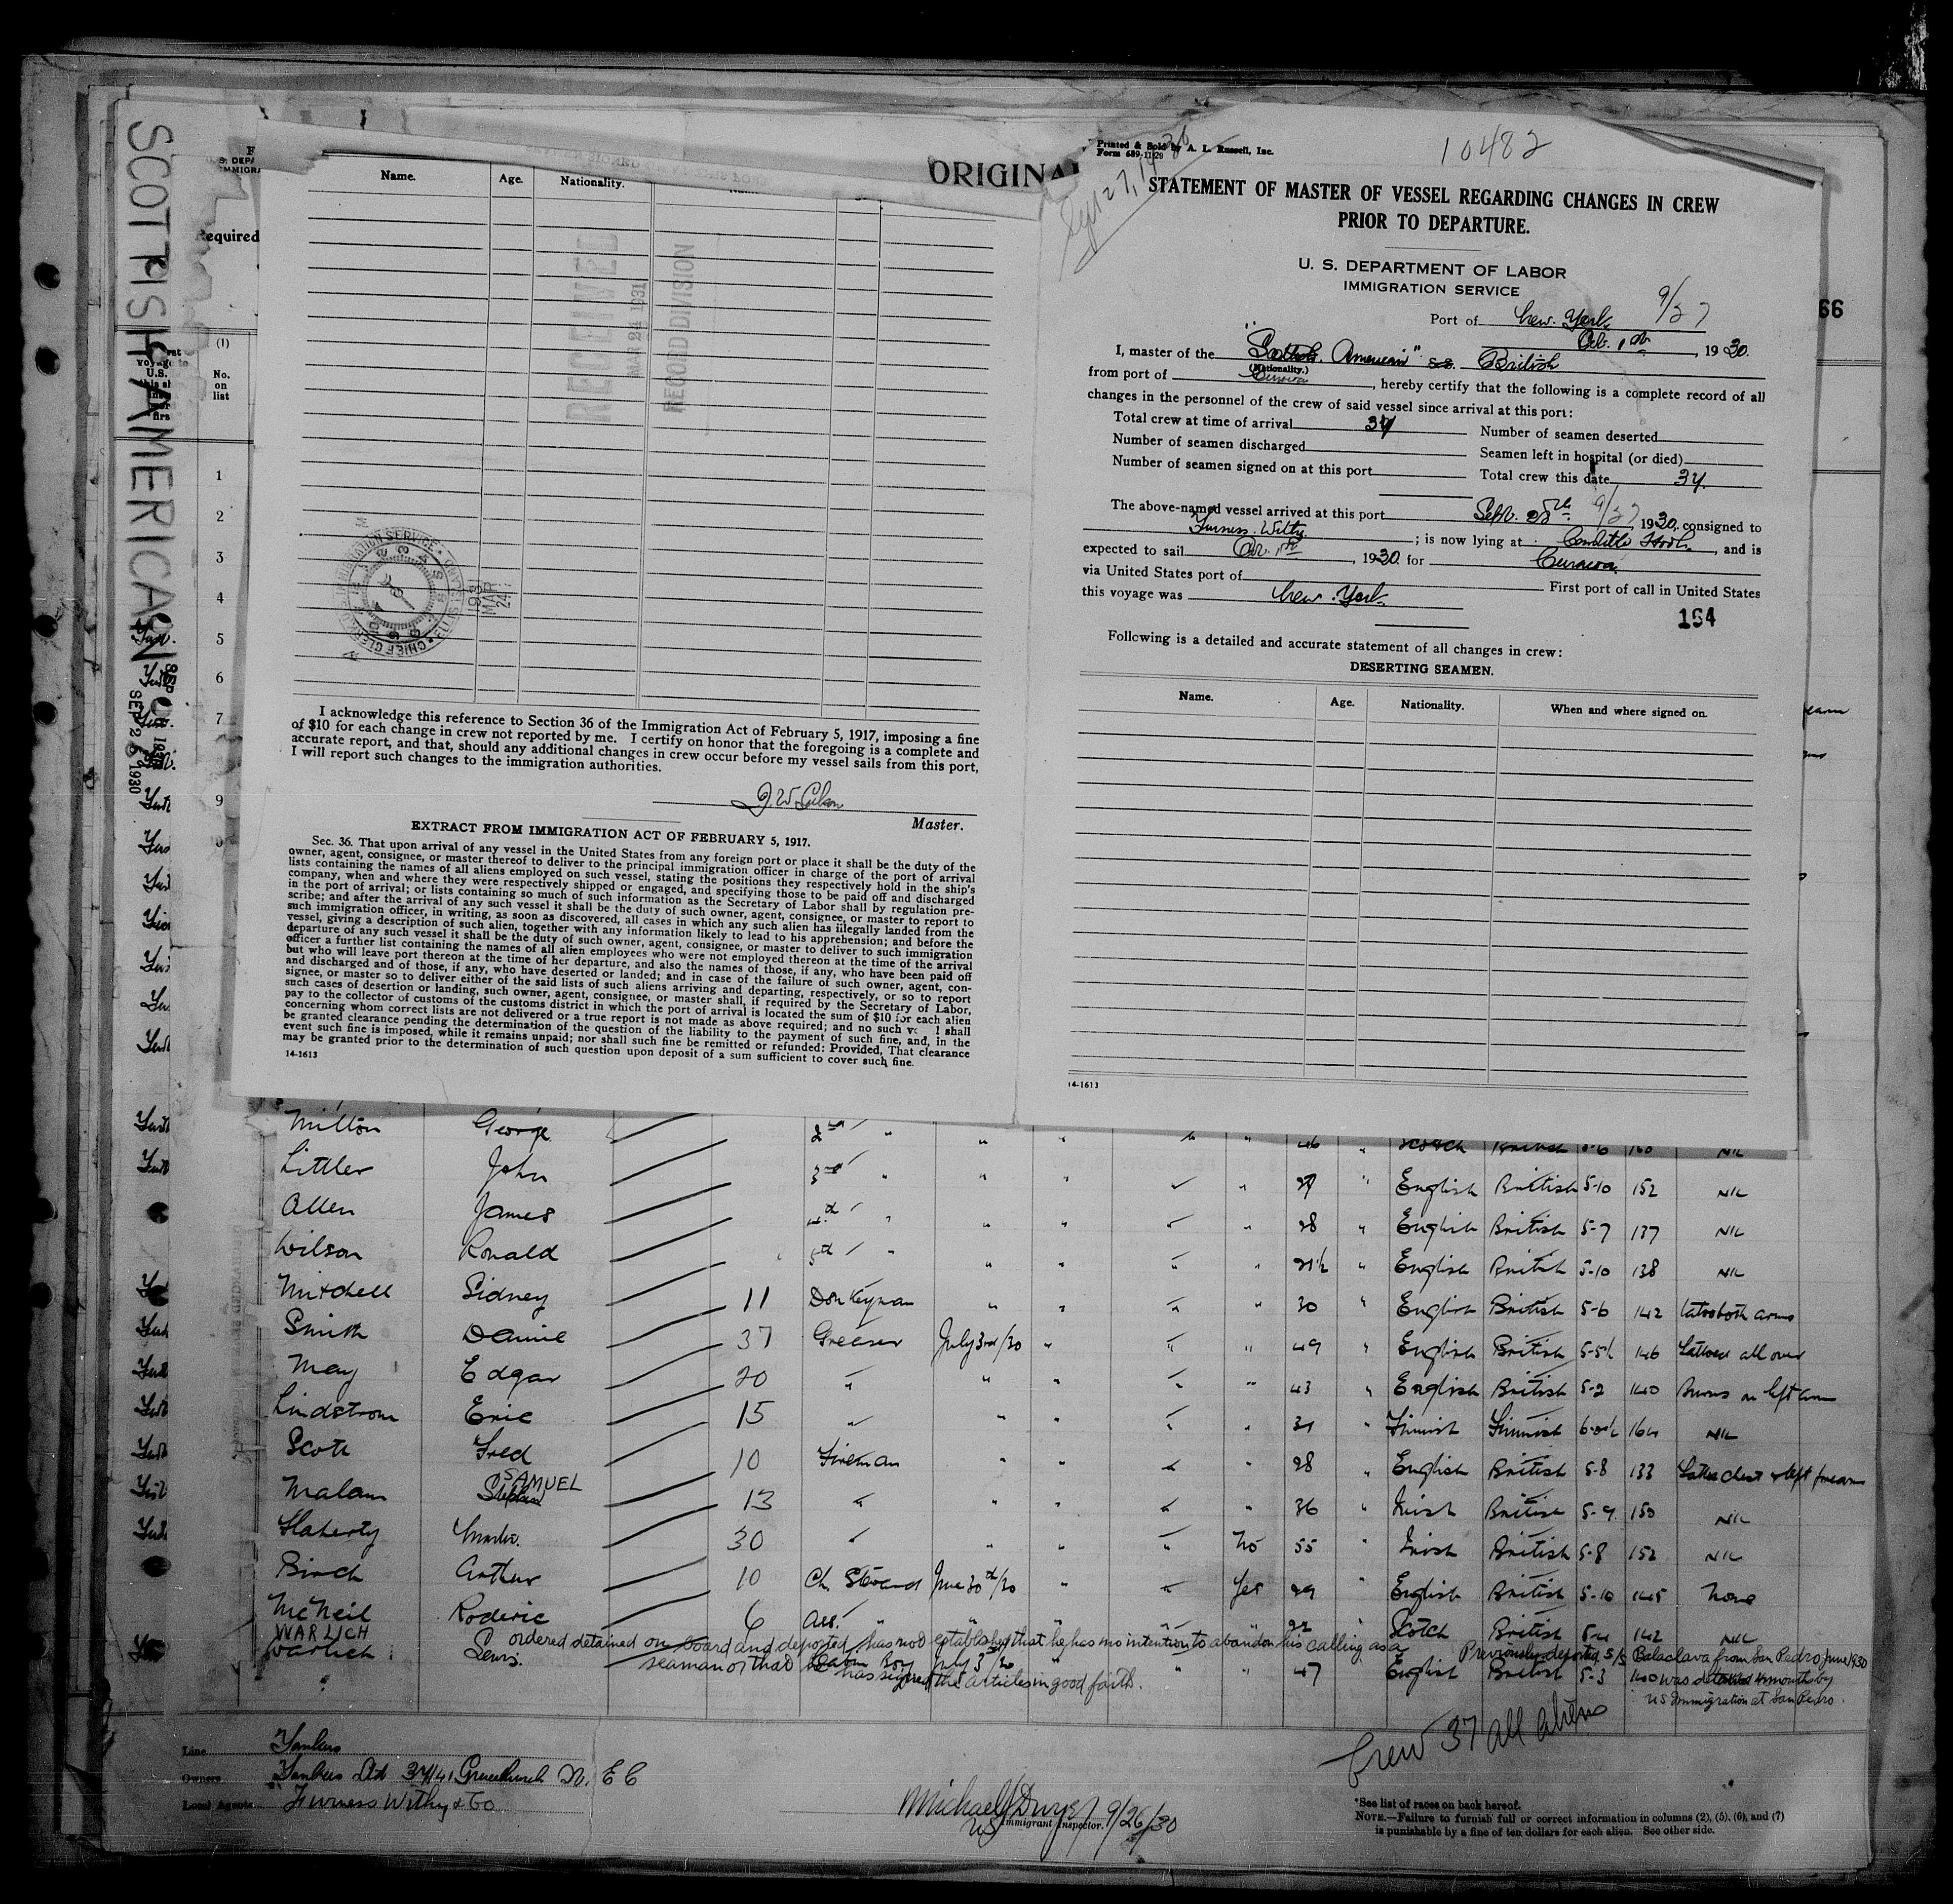 SCOTTISH AMERICAN
SEP 26 1930
Required
(1)
No.
on
list
1
2
3
4
5
6
7
9
66
ORIGINAL
Name. Age. Nationality.
RECEIVED
MAR 24 1931
RECORD DIVISION
I acknowledge this reference to Section 36 of the Immigration Act of February 5, 1917, imposing a fine
of $10 for each change in crew not reported by me. I certify on honor that the foregoing is a complete and
accurate report, and that, should any additional changes in crew occur before my vessel sails from this port,
I will report such changes to the immigration authorities.
Master.
EXTRACT FROM IMMIGRATION ACT OF FEBRUARY 5, 1917.
Sec. 36. That upon arrival of any vessel in the United States from any foreign port or place it shall be the duty of the
owner, agent, consignee, or master thereof to deliver to the principal immigration officer in charge of the port of arrival
lists containing the names of all aliens employed on such vessel, stating the positions they respectively hold in the ship's
company, when and where they were respectively shipped or engaged, and specifying those to be paid off and discharged
in the port of arrival; or lists containing so much of such information as the Secretary of Labor shall by regulation pre-
scribe; and after the arrival of any such vessel it shall be the duty of such owner, agent, consignee, or master to report to
such immigration officer, in writing, as soon as discovered, all cases in which any such alien has illegally landed from the
vessel, giving a description of such alien, together with any information likely to lead to his apprehension; and before the
departure of any such vessel it shall be the duty of such owner, agent, consignee, or master to deliver to such immigration
officer a further list containing the names of all alien employees who were not employed thereon at the time of the arrival
but who will leave port thereon at the time of her departure, and also the names of those, if any, who have been paid off
and discharged and of those, if any, who have deserted or landed; and in case of the failure of such owner, agent, con-
signee, or master so to deliver either of the said lists of such aliens arriving and departing, respectively, or so to report
such cases of desertion or landing, such owner, agent, consignee, or master shall, if required by the Secretary of Labor,
pay to the collector of customs of the customs district in which the port of arrival is located the sum of $10 for each alien
concerning whom correct lists are not delivered or a true report is not made as above required; and no such v l shall
be granted clearance pending the determination of the question of the liability to the payment of such fine, and, in the
event such fine is imposed, while it remains unpaid; nor shall such fine be remitted or refunded: Provided, That clearance
may be granted prior to the determination of such question upon deposit of a sum sufficient to cover such fine.
14-1613
Printed & Sold by A. L. Russell, Inc.
Form 689-11-29
10482
STATEMENT OF MASTER OF VESSEL REGARDING CHANGES IN CREW
PRIOR TO DEPARTURE.
U. S. DEPARTMENT OF LABOR
IMMIGRATION SERVICE
Port of New York 9/27
Oct. 1st, 1930.
I, master of the "Scottish American" S.S. British
(Nationality.)
from port of Curacoa, hereby certify that the following is a complete record of all
changes in the personnel of the crew of said vessel since arrival at this port:
Total crew at time of arrival 37 Number of seamen deserted
Number of seamen discharged Seamen left in hospital (or died)
Number of seamen signed on at this port Total crew this date 37.
The above-named vessel arrived at this port Sept. 9/27 1930, consigned to
Furness Withy; is now lying at Hook, and is
expected to sail Oct. 1st, 1930 for Curacoa
via United States port of First port of call in United States
this voyage was New York.
164
Following is a detailed and accurate statement of all changes in crew:
DESERTING SEAMEN.
Name. Age. Nationality. When and where signed on.
14-1613
Milton George 2nd " " " " " 46 " Scotch British 5-6 160 NIL
Littler John 3rd " " " " 29 " English British 5-10 152 NIL
Allen James 4th " " " " 28 " English British 5-7 137 NIL
Wilson Ronald 5th " " " " 21½ " English British 5-10 138 NIL
Mitchell Sidney 11 Donkeyman " " " " 30 " English British 5-6 142 tatoo both arms
Smith Daniel 37 Greaser July 3rd/30 " " " 49 " English British 5-5½ 146 Tattooed all over
May Edgar 20 " " " " " 43 " English British 5-2 140 Burns on left arm
Lindstrom Eric 15 " " " " " 31 " Finnish Finnish 6-0½ 164 NIL
Scott Fred 10 Fireman " " " " 28 " English British 5-8 133 Tattoo chest & left forearm
Malam SAMUEL 13 " " " " " 36 " Irish British 5-9 150 NIL
Flaherty Martin 30 " " " " No 55 " Irish British 5-8 152 NIL
Birch Arthur 10 Ch. Steward June 30th/30 " " Yes 29 English British 5-10 145 None
McNeil Roderic 6 Ass. " " " " " 22 " Scotch British 5-4 142 NIL
WARLICH
Warlich Lewis Cabin Boy July 3rd 30 " " " 47 " English British 5-3 140
ordered detained on board and deported has not established that he has no intention to abandon his calling as a
seaman or that he has signed the articles in good faith.
Previously deported S/S Balaclava from San Pedro, June 1930
was detained 4 months by
US Immigration at San Pedro.
Crew 37 all aliens
Line Tankers
Owners Tankers Ltd 37/41 Gracechurch St. E C
Local Agents Furness Withy & Co
Michael J Dwyer 9/26/30
US Immigrant Inspector.
*See list of races on back hereof.
NOTE.—Failure to furnish full or correct information in columns (2), (5), (6), and (7)
is punishable by a fine of ten dollars for each alien. See other side.